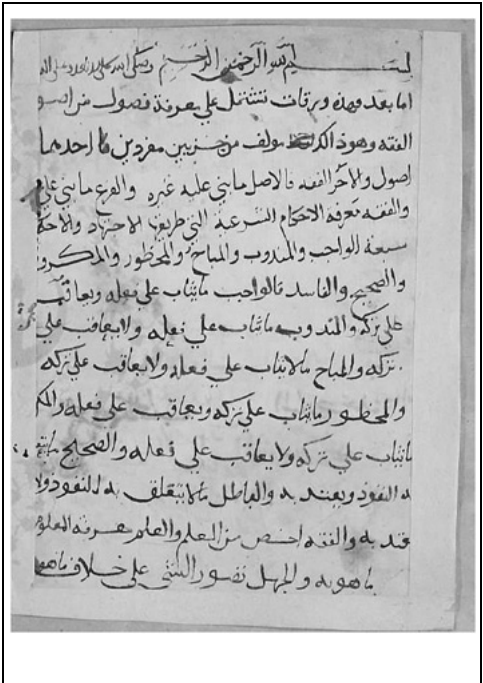 بسم الله الرحمن الرحيم وصلى الله على
اما بعد فهذه ورقات تشتمل على معرفة فصول من اصو
الفقه وهو ذالك مولف من جزيين مفردين فاحدهما
اصول والآخر الفقه فالاصل ما بني عليه غيره والفرع ما بني علي
والفقه معرفة الاحكام الشرعية التي طريقها الاجتهاد والاحكا
سبعة الواجب والمندوب والمباح والمحظور والمكرو
والصحيح والفاسد فالواجب ما يثاب على فعله ويعاقب
على تركه والمندوب ما يثاب على فعله ولا يعاقب على
تركه والمباح ما لا يثاب على فعله ولا يعاقب على تركه
والمحظور ما يثاب على تركه ويعاقب على فعله والمك
ما يثاب على تركه ولا يعاقب على فعله والصحيح ما يتع
به النفوذ ويعتد به والباطل ما لا يتعلق به النفوذ ولا
يعتد به والفقه اخص من العلم والعلم معرفة المعلوم
ما هو به والجهل تصور الشي على خلاف ما هو